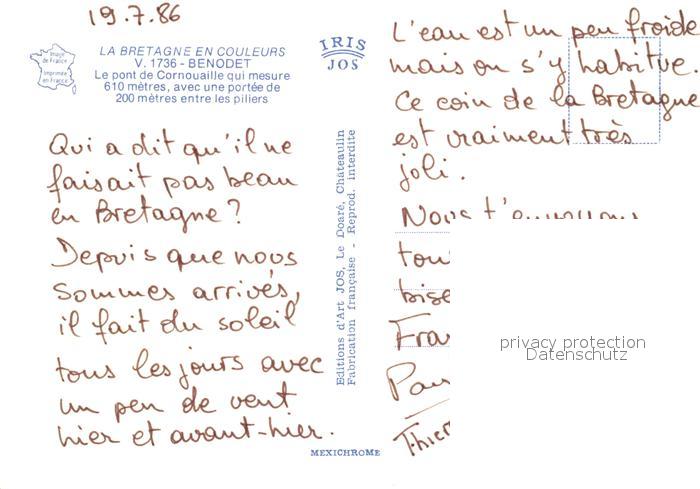 19.7.86
Image
de France
Imprimée
en France
LA BRETAGNE EN COULEURS
V. 1736 - BENODET
Le pont de Cornouaille qui mesure
610 mètres, avec une portée de
200 mètres entre les piliers
Qui a dit qu'il ne
faisait pas beau
en Bretagne ?
Depuis que nous
sommes arrivés,
il fait du soleil
tous les jours avec
un peu de vent
hier et avant-hier.
IRIS
JOS
Editions d'Art JOS, Le Doaré, Chateaulin
Fabrication française - Reprod. interdite
MEXICHROME
L'eau est un peu froide
mais on s'y habitue.
Ce coin de la Bretagne
est vraiment très
joli.
Nous t'envoyons
privacy protection
Datenschutz